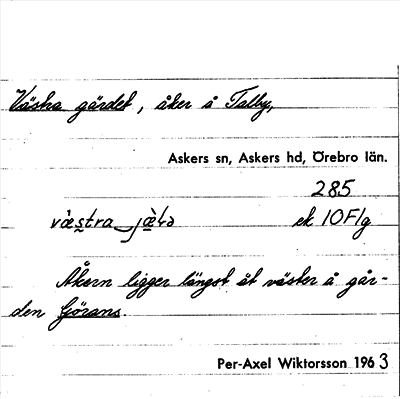 Västra gärdet, åker å Talby,
Askers sn, Askers hd, Örebro län.
285
væ̀stra‿jæ̀ɭə ek 10F/g
Åkern ligger längst åt väster å går-
den Görans.
Per-Axel Wiktorsson 1963